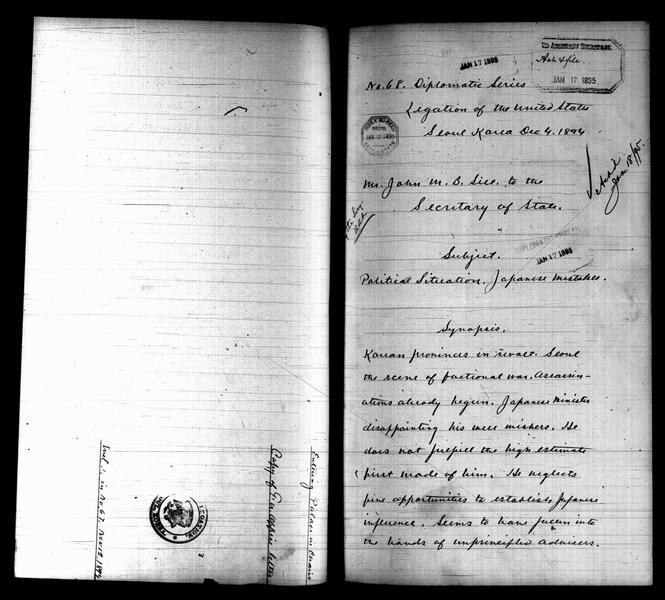 Entering Palace in Chairs
Copy of Gen. Office letter
Encl. in No. 67, Nov. 12, 1894
JAN 17 1895
2D ASSISTANT SECRETARY
Ack &file
JAN 17 1895
No. 68. Diplomatic Series
Legation of the United State
Seoul Korea Dec 4. 1894
JAN 12 1895
Ackd
Jan 18/95
Mr. John M. B. Sill to the
Secretary of State.
JAN 17 1895
Subject.
Political Situation. Japanese Mistakes.
Synopsis.
Korean provinces in revolt. Seoul
the scene of factional war. Assassin-
ations already begun. Japanese Minister
disappointing his well wishers. He
does not fulfill the high estimate
first made of him. He neglects
fine opportunities to establish Japanese
influence. Seems to have fallen into
the hands of unprincipled advisers.